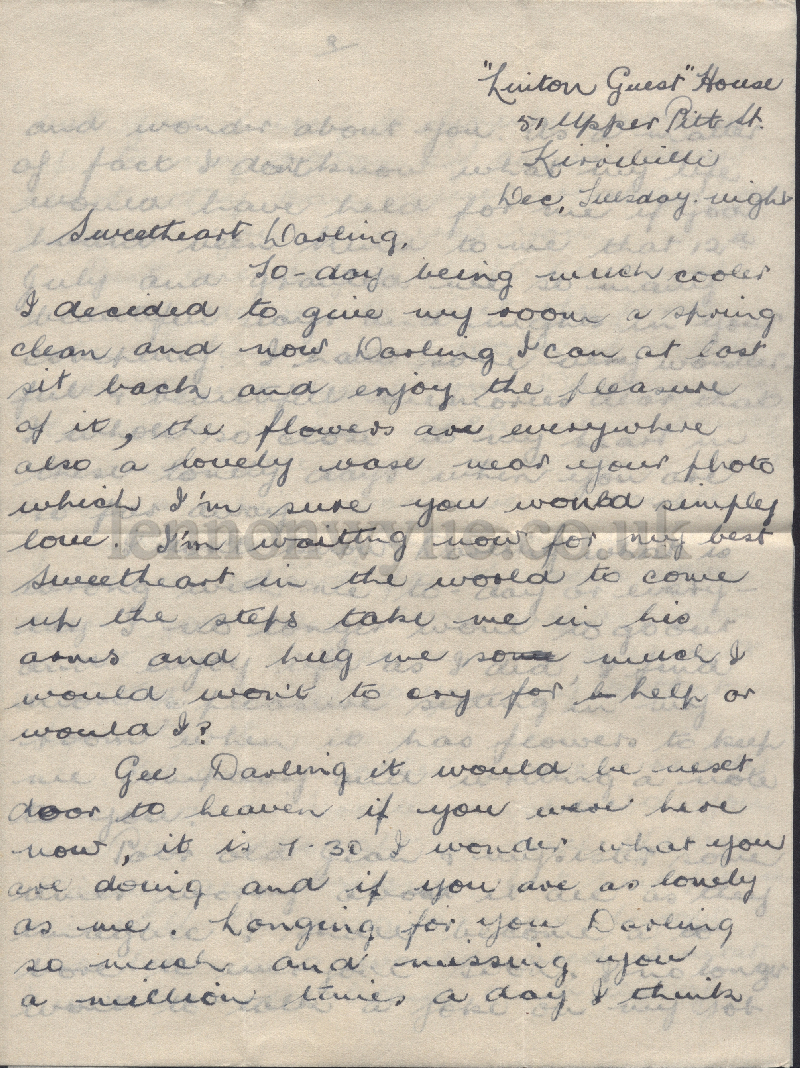 "Linton Guest" House
51 Upper Pitt St.
Kirribilli
Dec, Tuesday. night
Sweetheart Darling,
To-day being much cooler
I decided to give my room a spring
clean and now Darling I can at last
sit back and enjoy the pleasure
of it, the flowers are everywhere
also a lovely vase near your photo
which I'm sure you would simply
love. I'm waiting now for my best
sweetheart in the world to come
up the steps take me in his
arms and hug me so much I
would won't to cry for help or
would I?
Gee Darling it would be next
door to heaven if you were here
now, it is 7.30 I wonder what you
are doing and if you are as lonely
as me. Longing for you Darling
so much and missing you
a million times a day I think
lennonwylie.co.uk